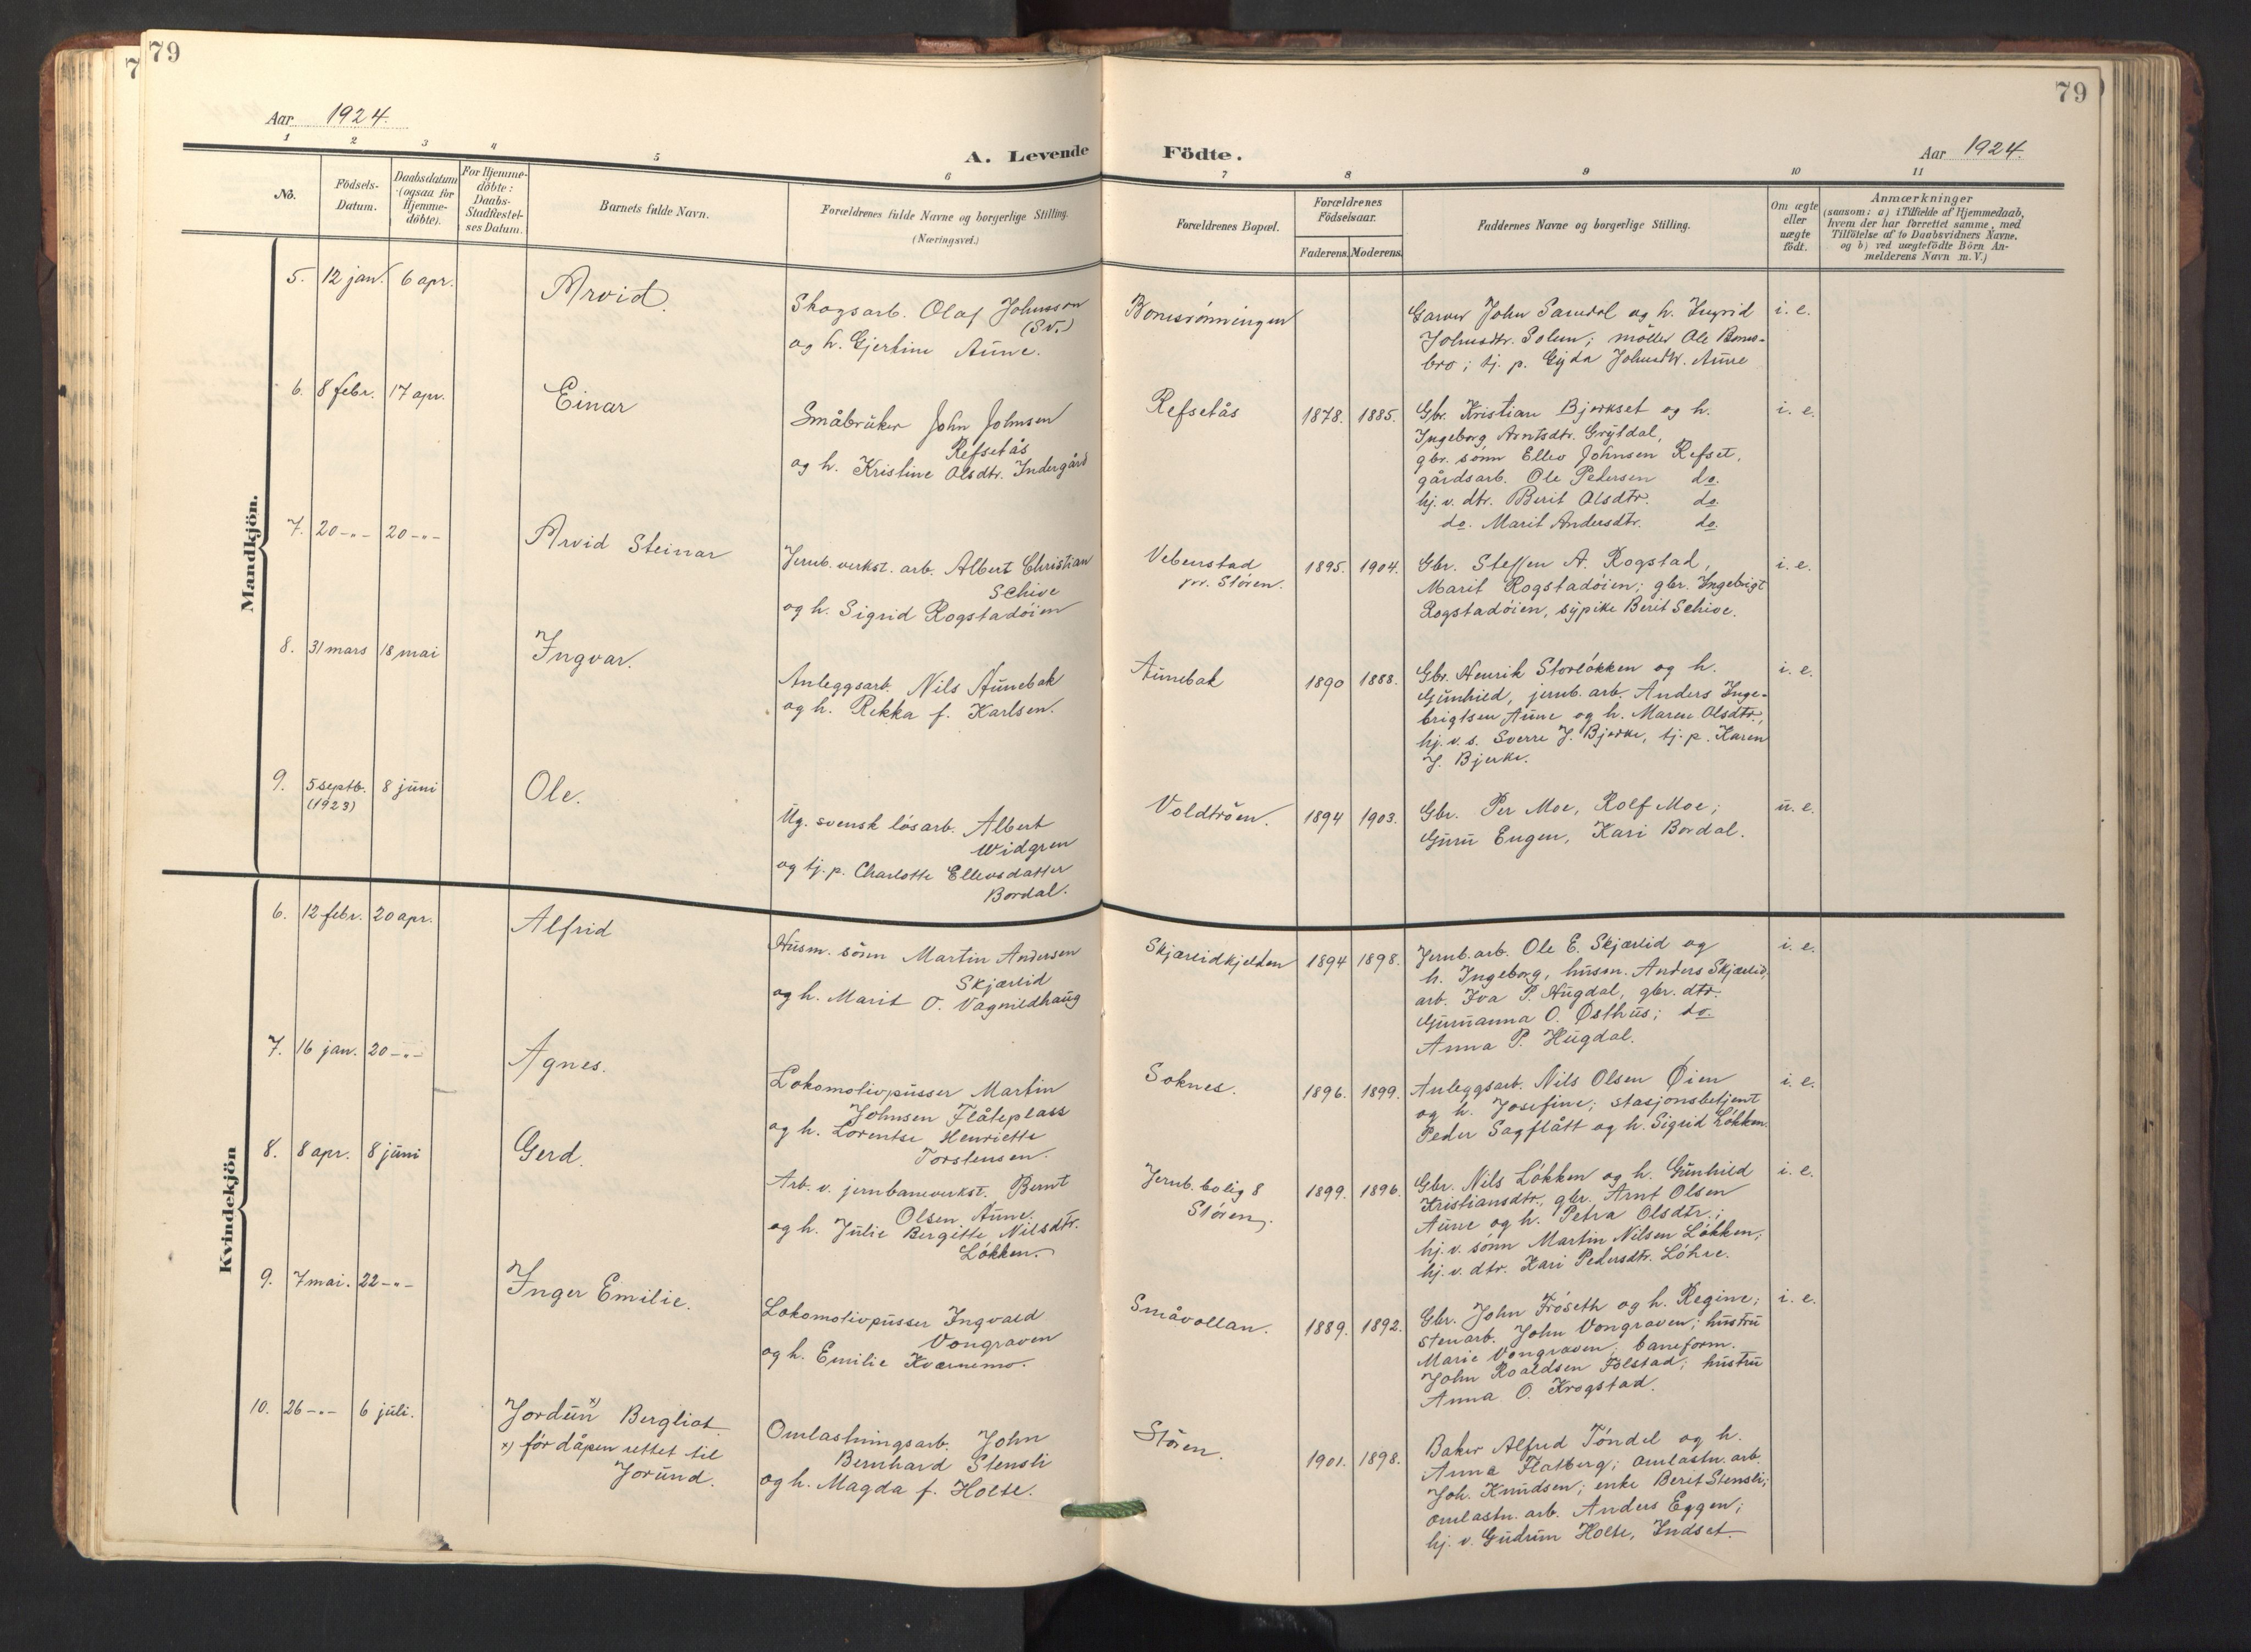 79
7
79
Aar 1924.
A. Levende
Födte.
Aar 1924.
1
2
3
4
5
6
7
8
9
10
11
No.
Födsels-
Datum.
Daabsdatum
(ogsaa for
Hjemme-
döbte).
For Hjemme-
döbte:
Daabs-
Stadfæstel-
ses Datum.
Barnets fulde Navn.
Forældrenes fulde Navne og borgerlige Stilling.
(Næringsvei.)
Forældrenes Bopæl.
Forældrenes
Födselsaar.
Faderens. Moderens.
Faddernes Navne og borgerlige Stilling.
Om ægte
eller
uægte
födt.
Anmærkninger
(saasom: a) i Tilfælde af Hjemmedaab,
hvem der har forrettet samme, med
Tilföielse af to Daabsvidners Navne.
og b) ved uægtefödte Börn An-
melderens Navn m.V.)
Mandkjön.
5. 12 jan. 6 apr.
Arvid.
Skogsarb. Olaf Johnsson
(Sv.)
og h. Gjertine Aune.
Bonesrönningen
Garver John Samdal og h. Ingrid
Johnsdtr. Solem; möller Ole Bones-
bro; tj. p. Gyda Johnsdtr. Aune
i. e.
6. 8 febr. 17 apr.
Einar
Småbruker John Johnsen
Refsetås
og h. Kristine Olsdtr. Indergård
Refsetås
1878. 1885.
Gbr. Kristian Bjerkset og h.
Ingeborg Arntsdtr. Grytdal,
gbr. sönn Ellev Johnsen Refset,
gårdsarb. Ole Pedersen do.
hj. v. dtr. Berit Olsdtr. do.
do. Marit Andersdtr. do.
i. e.
7. 20 -„- 20 -„-
Arvid Steinar
Jernb. verkst. arb. Albert Christian
Schive
og h. Sigrid Rogstadöien
Vebenstad
pr. Stören.
1895. 1904.
Gbr. Steffen A. Rogstad,
Marit Rogstadöien; gbr. Ingebrigt
Rogstadöien, sypike Berit Schive.
i. e.
8. 31 mars 18 mai
Ingvar.
Anleggsarb. Nils Aunebak
og h. Rekka f. Karlsen.
Aunebak
1890 1888.
Gbr. Henrik Storlökken og h.
Gunhild, jernb. arb. Anders Inge-
brigtsen Aune og h. Maren Olsdtr.,
hj. v. s. Sverre J. Bjerke, tj. p. Karen
J. Bjerke.
i. e.
9. 5 septb. 8 juni
(1923)
Ole.
Ug. svensk lösarb. Albert
Widgren
og tj. p. Charlotte Ellevsdatter
Bordal.
Voldtröen.
1894 1903.
Gbr. Per Moe, Rolf Moe;
Guru Eugen, Kari Bordal.
u. e.
Kvindekjön
6. 12 febr. 20 apr.
Alfrid
Husm. sönn Martin Andersen
Skjærlid
og h. Marit O. Vagnildhaug
Skjærlidkjelden
1894 1898.
Jernb. arb. Ole E. Skjærlid og
h. Ingeborg, husm. Anders Skjærlid,
arb. Iva P. Hugdal, gbr. dtr.
Guruanna O. Østhus; do.
Anna P. Hugdal.
i. e.
7. 16 jan. 20 -„-
Agnes.
Lokomotivpusser Martin
Johnsen Flåteplass
og h. Lorentse Henriette
Torstensen.
Soknes.
1896. 1899.
Anleggsarb. Nils Olsen Øien
og h. Josefine; stasjonsbetjent
Peder Sagflått og h. Sigrid Lökken.
i. e.
8. 8 apr. 8 juni
Gerd.
Arb. v. jernbaneverkst. Bernt
Olsen Aune.
og h. Julie Bergitte Nilsdtr.
Lökken.
Jernb. bolig 8
Stören.
1899. 1896.
Gbr. Nils Lökken og h. Gunhild
Kristiansdtr., gbr. Arnt Olsen
Aune og h. Petra Olsdtr.;
hj. v. sönn Martin Nilsen Lökken,
hj. v. dtr. Kari Pedersdtr. Löhre.
i. e.
9. 7 mai. 22 -„-
Inger Emilie.
Lokomotivpusser Ingvald
Vongraven
og h. Emilie Kværnemo.
Småvollan.
1889. 1892.
Gbr. John Fröseth og h. Regine;
stenarb. John Vongraven; hustru
Marie Vongraven; baneform.
John Roaldsen Folstad; hustru
Anna O. Krogstad.
i. e.
10. 26 -„- 6 juli.
Jordun x) Bergliot
x) för dåpen rettet til
Jorund.
Omlastningsarb. John
Bernhard Stensli
og h. Magda f. Holte.
Stören.
1901. 1898.
Baker Alfred Töndel og h.
Anna Flatberg; omlastn. arb.
Joh. Knudsen; enke Berit Stensli;
omlastn. arb. Anders Eggen;
hj. v. Gudrun Holte, Indset.